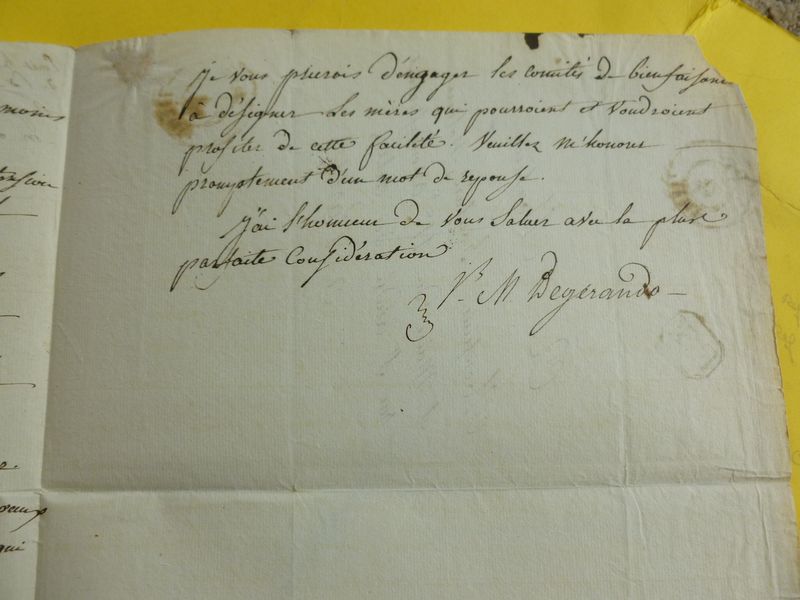 je vous prierois d'engager les comités de bienfaisance
à désigner les mères qui pourroient et voudroient
profiter de cette facilité. Veuillez m'honorer
promptement d'un mot de reponse.
J'ai l'honneur de vous saluer avec la plus
parfaite Considération
Degérando
moins